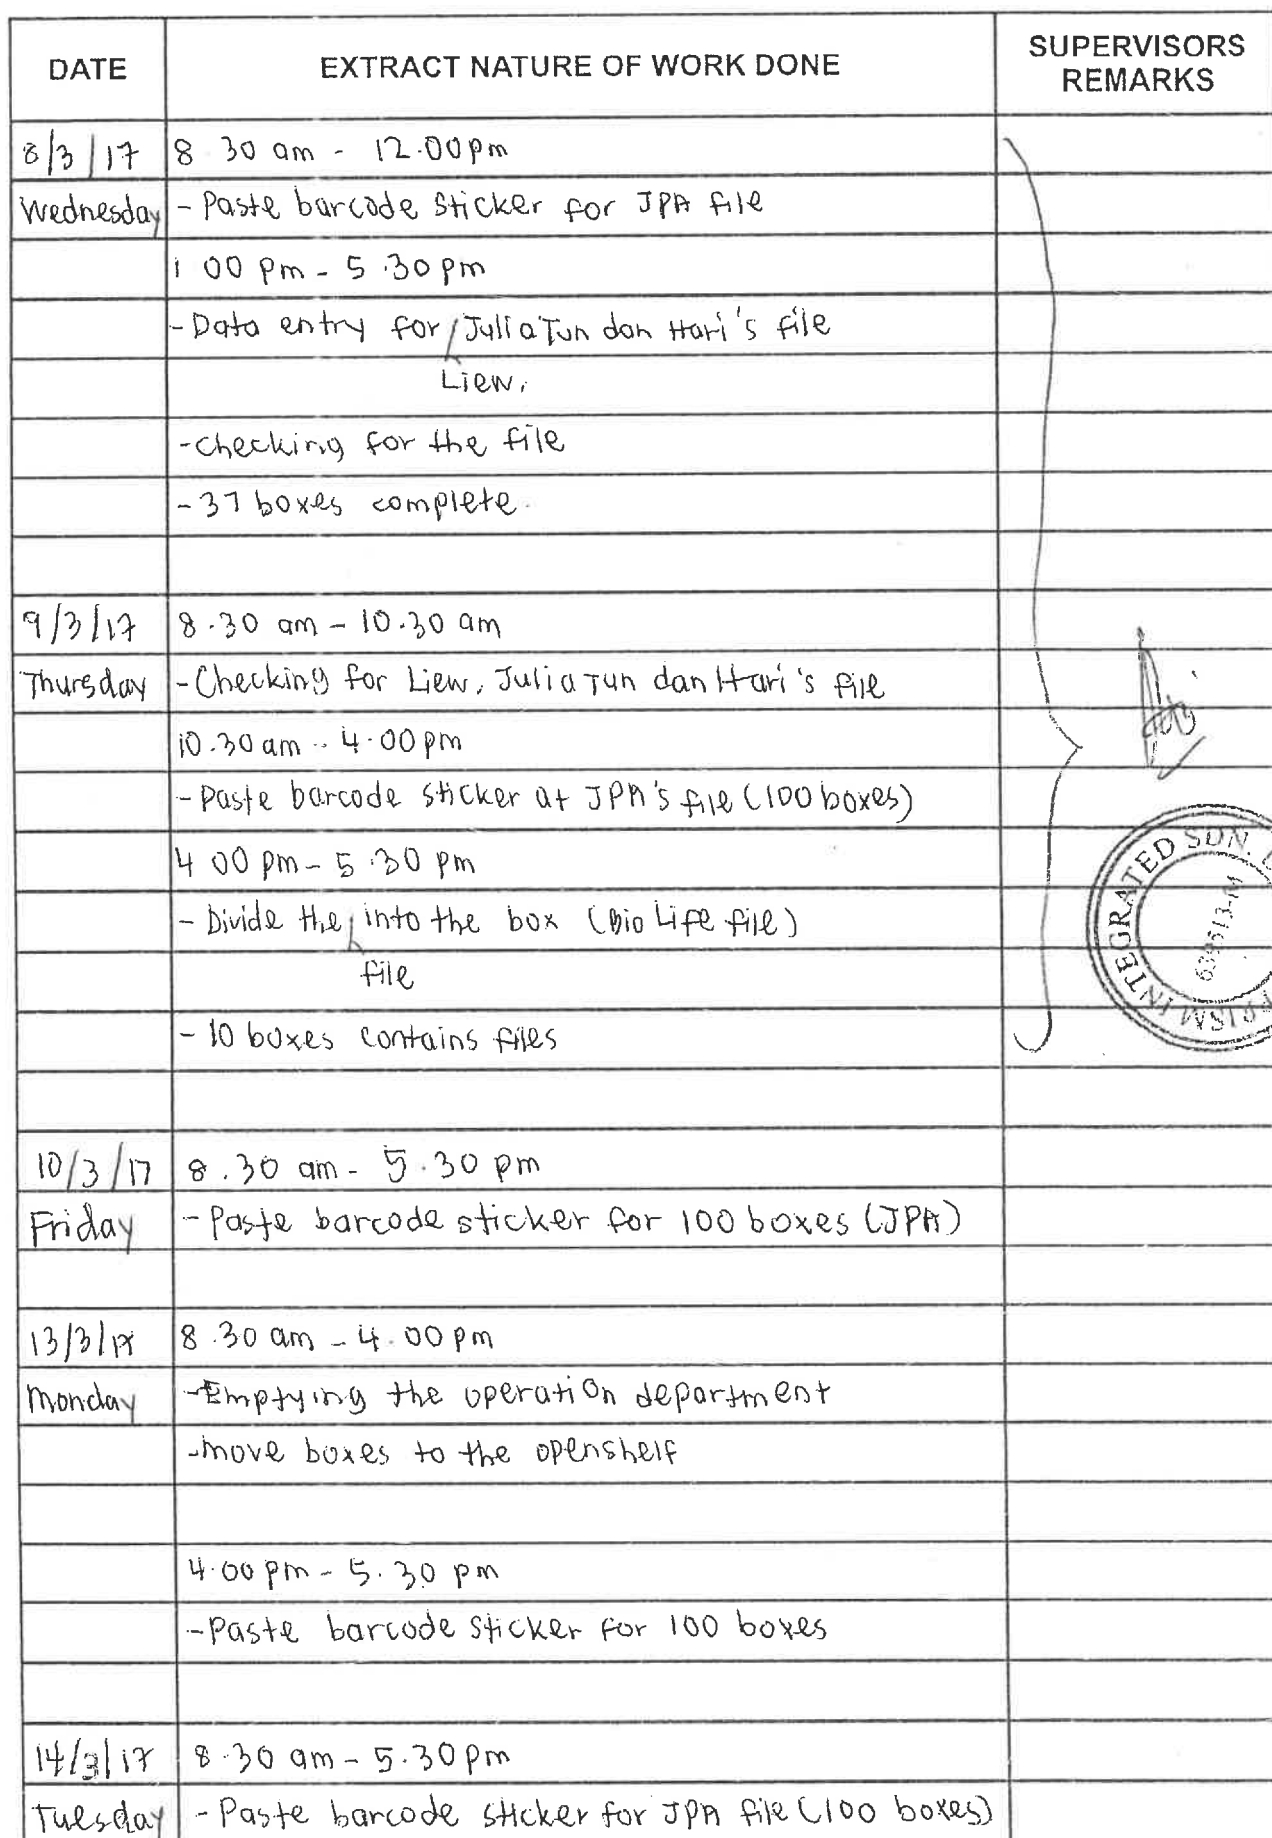 DATE EXTRACT NATURE OF WORK DONE SUPERVISORS REMARKS
8/3/17 8.30 am - 12.00pm
Wednesday - Paste barcode sticker for JPA file
1.00 pm - 5.30 pm
- Data entry for Julia Tun dan Hari's file
Liew,
- checking for the file
- 37 boxes complete.
9/3/17 8.30 am - 10.30 am
Thursday - Checking for Liew, Julia Tun dan Hari's file
10.30 am - 4.00 pm
- Paste barcode sticker at JPA's file (100 boxes)
4.00 pm - 5.30 pm
- Divide the into the box (Bio Life file)
file
- 10 boxes contains files
PRISM INTEGRATED SDN.
10/3/17 8.30 am - 5.30 pm
Friday - Paste barcode sticker for 100 boxes (JPA)
13/3/17 8.30 am - 4.00 pm
Monday - Emptying the operation department
- move boxes to the openshelf
4.00 pm - 5.30 pm
- Paste barcode sticker for 100 boxes
14/3/17 8.30 am - 5.30 pm
Tuesday - Paste barcode sticker for JPA file (100 boxes)